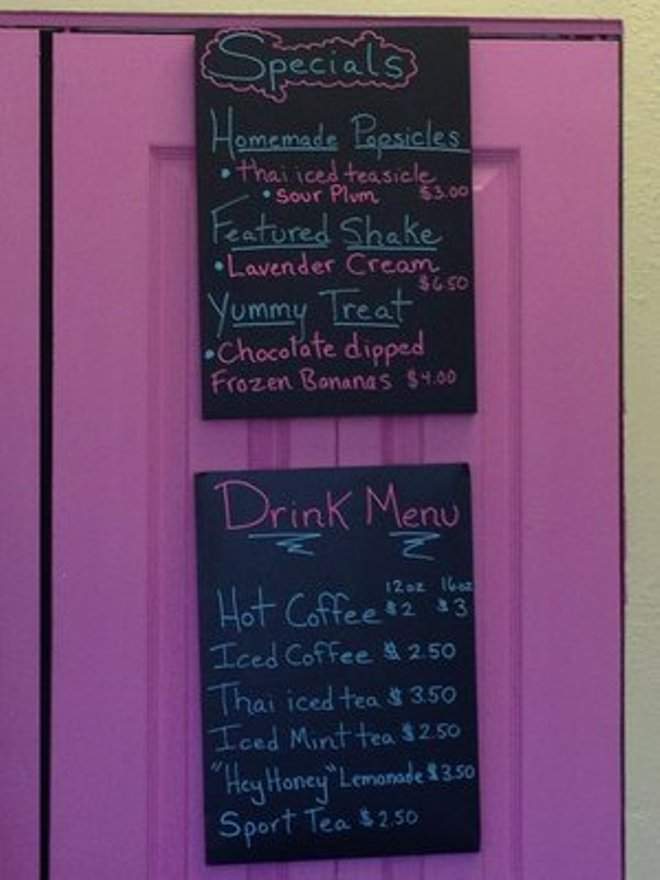 Specials
Homemade Popsicles
• thai iced teasicle
• Sour Plum $3.00
Featured Shake
• Lavender Cream
$6.50
Yummy Treat
• Chocolate dipped
Frozen Bananas $4.00
Drink Menu
12oz 16oz
Hot Coffee $2 $3
Iced Coffee $2.50
Thai iced tea $3.50
Iced Mint tea $2.50
"Hey Honey" Lemonade $3.50
Sport Tea $2.50